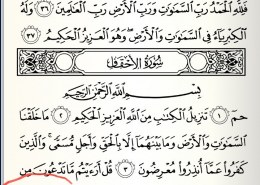 فَلِلَّهِ الْحَمْدُ رَبِّ السَّمَٰوَٰتِ وَرَبِّ الْأَرْضِ رَبِّ الْعَٰلَمِينَ ٣٦ وَلَهُ
الْكِبْرِيَآءُ فِي السَّمَٰوَٰتِ وَالْأَرْضِ وَهُوَ الْعَزِيزُ الْحَكِيمُ ٣٧
سُورَةُ الْأَحْقَافِ
بِسْمِ اللَّهِ الرَّحْمَٰنِ الرَّحِيمِ
حمٓ ١ تَنزِيلُ الْكِتَٰبِ مِنَ اللَّهِ الْعَزِيزِ الْحَكِيمِ ٢ مَا خَلَقْنَا
السَّمَٰوَٰتِ وَالْأَرْضَ وَمَا بَيْنَهُمَآ إِلَّا بِالْحَقِّ وَأَجَلٍ مُّسَمًّى وَالَّذِينَ
كَفَرُوا عَمَّآ أُنذِرُوا مُعْرِضُونَ ٣ قُلْ أَرَءَيْتُم مَّا تَدْعُونَ مِن